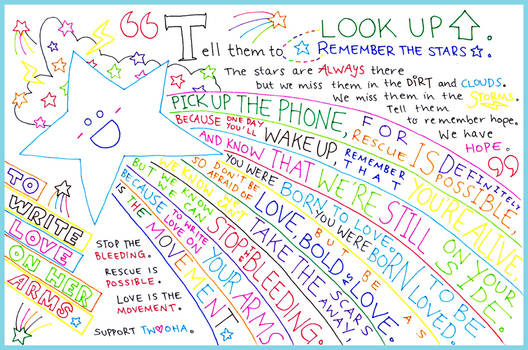 “ Tell them to LOOK UP.
REMEMBER THE STARS.
The stars are ALWAYS there
but we miss them in the DIRT and CLOUDS.
We miss them in the STORMS.
Tell them
to remember hope.
We have
HOPE. ”
PICK UP THE PHONE, FOR RESCUE IS DEFINITELY POSSIBLE,
BECAUSE ONE DAY YOU'LL WAKE UP, REMEMBER THAT YOU'RE ALIVE,
AND KNOW THAT WE'RE STILL ON YOUR SIDE.
YOU WERE BORN TO LOVE. YOU WERE BORN TO BE LOVED.
SO DON'T BE AFRAID OF LOVE, BUT BE AS BOLD LOVE.
WE KNOW TAKE THE SCARS AWAY,
BUT WE KNOW WE CAN STOP THE BLEEDING.
BECAUSE TO WRITE LOVE ON YOUR ARMS
IS THE MOVEMENT.
TO
WRITE
LOVE
ON HER
ARMS
STOP THE
BLEEDING.
RESCUE IS
POSSIBLE.
LOVE IS THE
MOVEMENT.
SUPPORT TWLOHA.